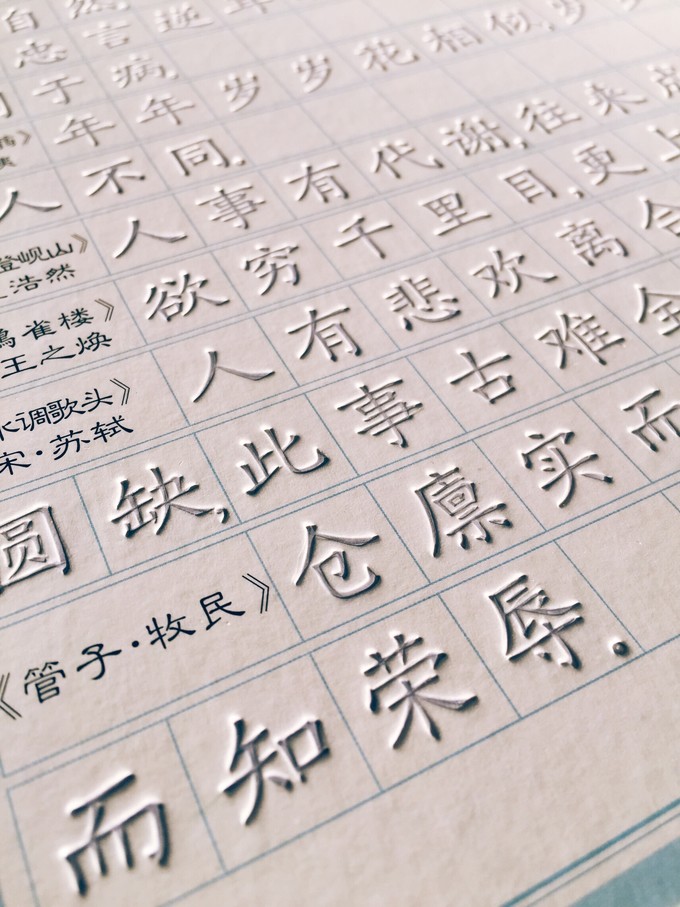 自然
忠言逆
于病.
年年岁岁花相似,岁
人不同.
登岘山》
浩然
人事有代谢,往来
鹳雀楼》
王之焕
欲穷千里目,更上
水调歌头》
宋·苏轼
人有悲欢离合
圆缺,此事古难全
《管子·牧民》
仓廪实而
而知荣辱.